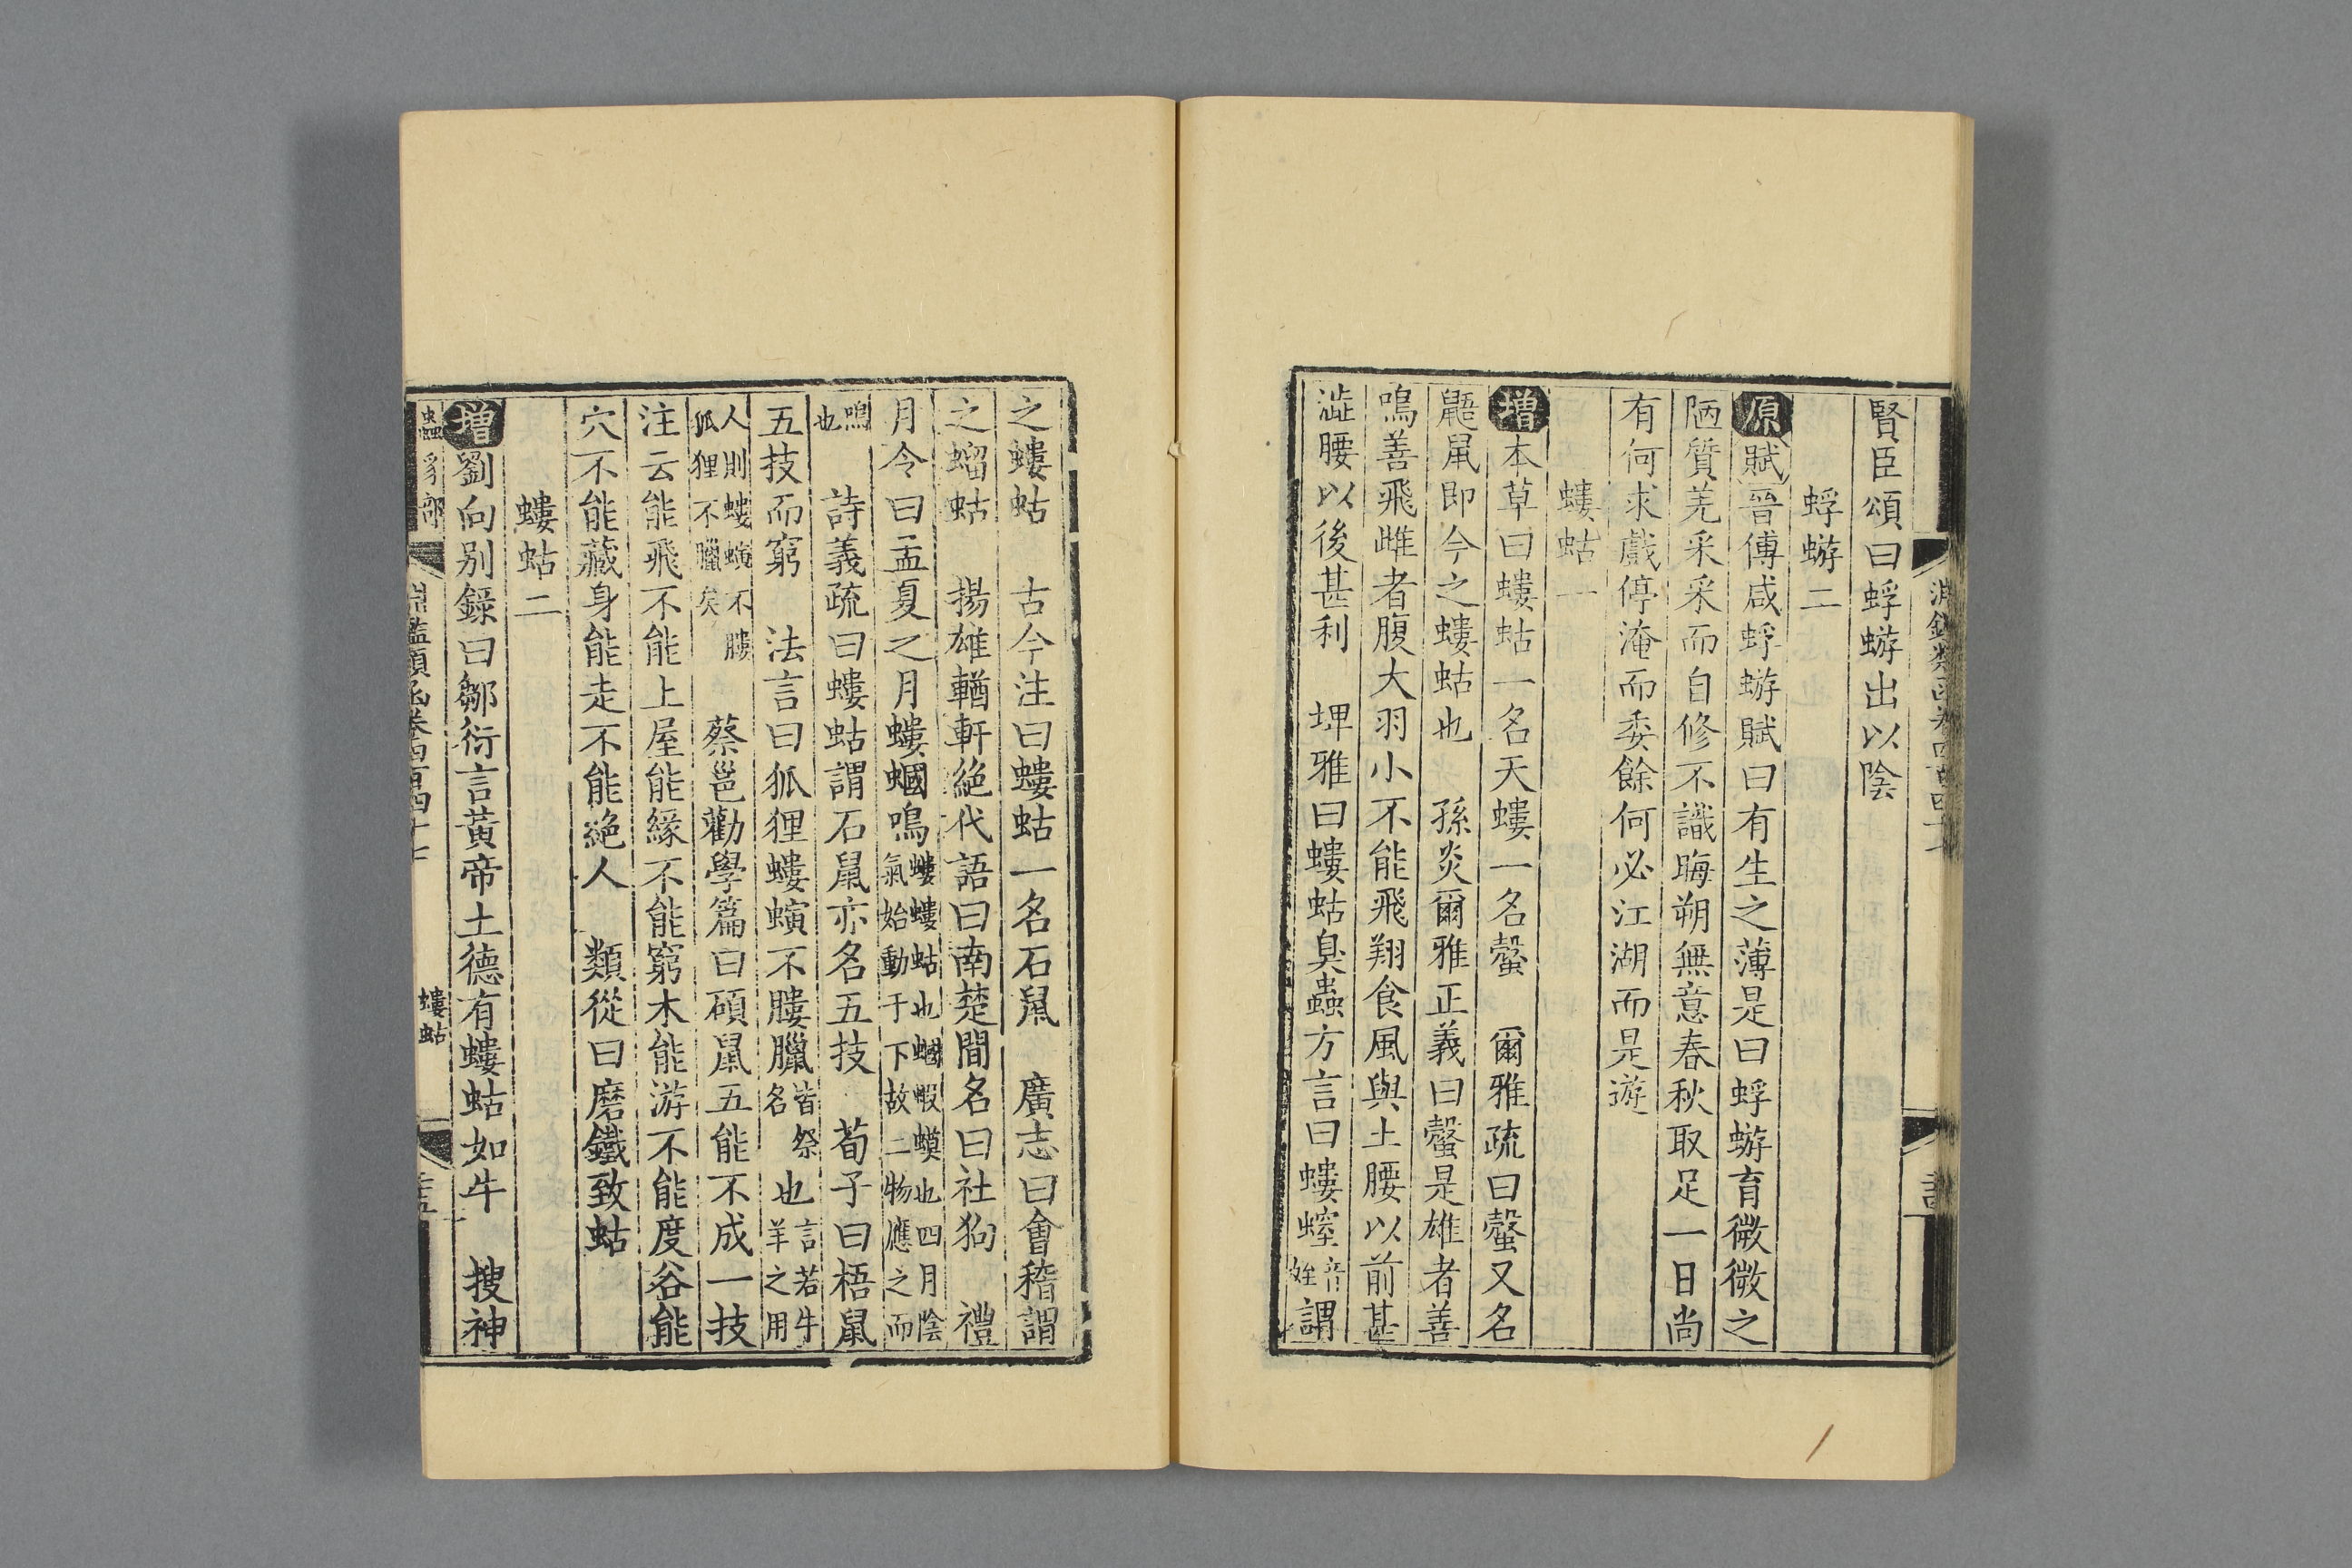 賢臣頌曰蜉蝣出以陰
蜉蝣二
原賦晉傅咸蜉蝣賦曰有生之薄是曰蜉蝣育微微之
陋質羌采采而自修不識晦朔無意春秋取足一日尚
有何求戲停淹而委餘何必江湖而是遊
螻蛄一
增本草曰螻蛄一名天螻一名螜　爾雅疏曰螜又名
鼫鼠即今之螻蛄也　孫炎爾雅正義曰螜是雄者善
鳴善飛雌者腹大羽小不能飛翔食風與土腰以前甚
澁腰以後甚利　埤雅曰螻蛄臭蟲方言曰螻螲音姪謂
之螻蛄　古今注曰螻蛄一名石鼠　廣志曰會稽謂
之䗜蛄　揚雄輶軒絕代語曰南楚間名曰社狗　禮
月令曰孟夏之月螻蟈鳴螻螻蛄也蟈蝦蟆也四月陰氣始動于下故二物應之而
鳴也　詩義疏曰螻蛄謂石鼠亦名五技　荀子曰梧鼠
五技而窮　法言曰狐狸螻螾不膢臘皆祭名也言若牛羊之用
人則螻螾不膢狐狸不臘矣　蔡邕勸學篇曰碩鼠五能不成一技
注云能飛不能上屋能緣不能窮木能游不能度谷能
穴不能藏身能走不能絕人　類從曰磨鐵致蛄
螻蛄二
增劉向別錄曰鄒衍言黃帝土德有螻蛄如牛　搜神
蟲豸部　淵鑑類函卷四百四十七　螻蛄